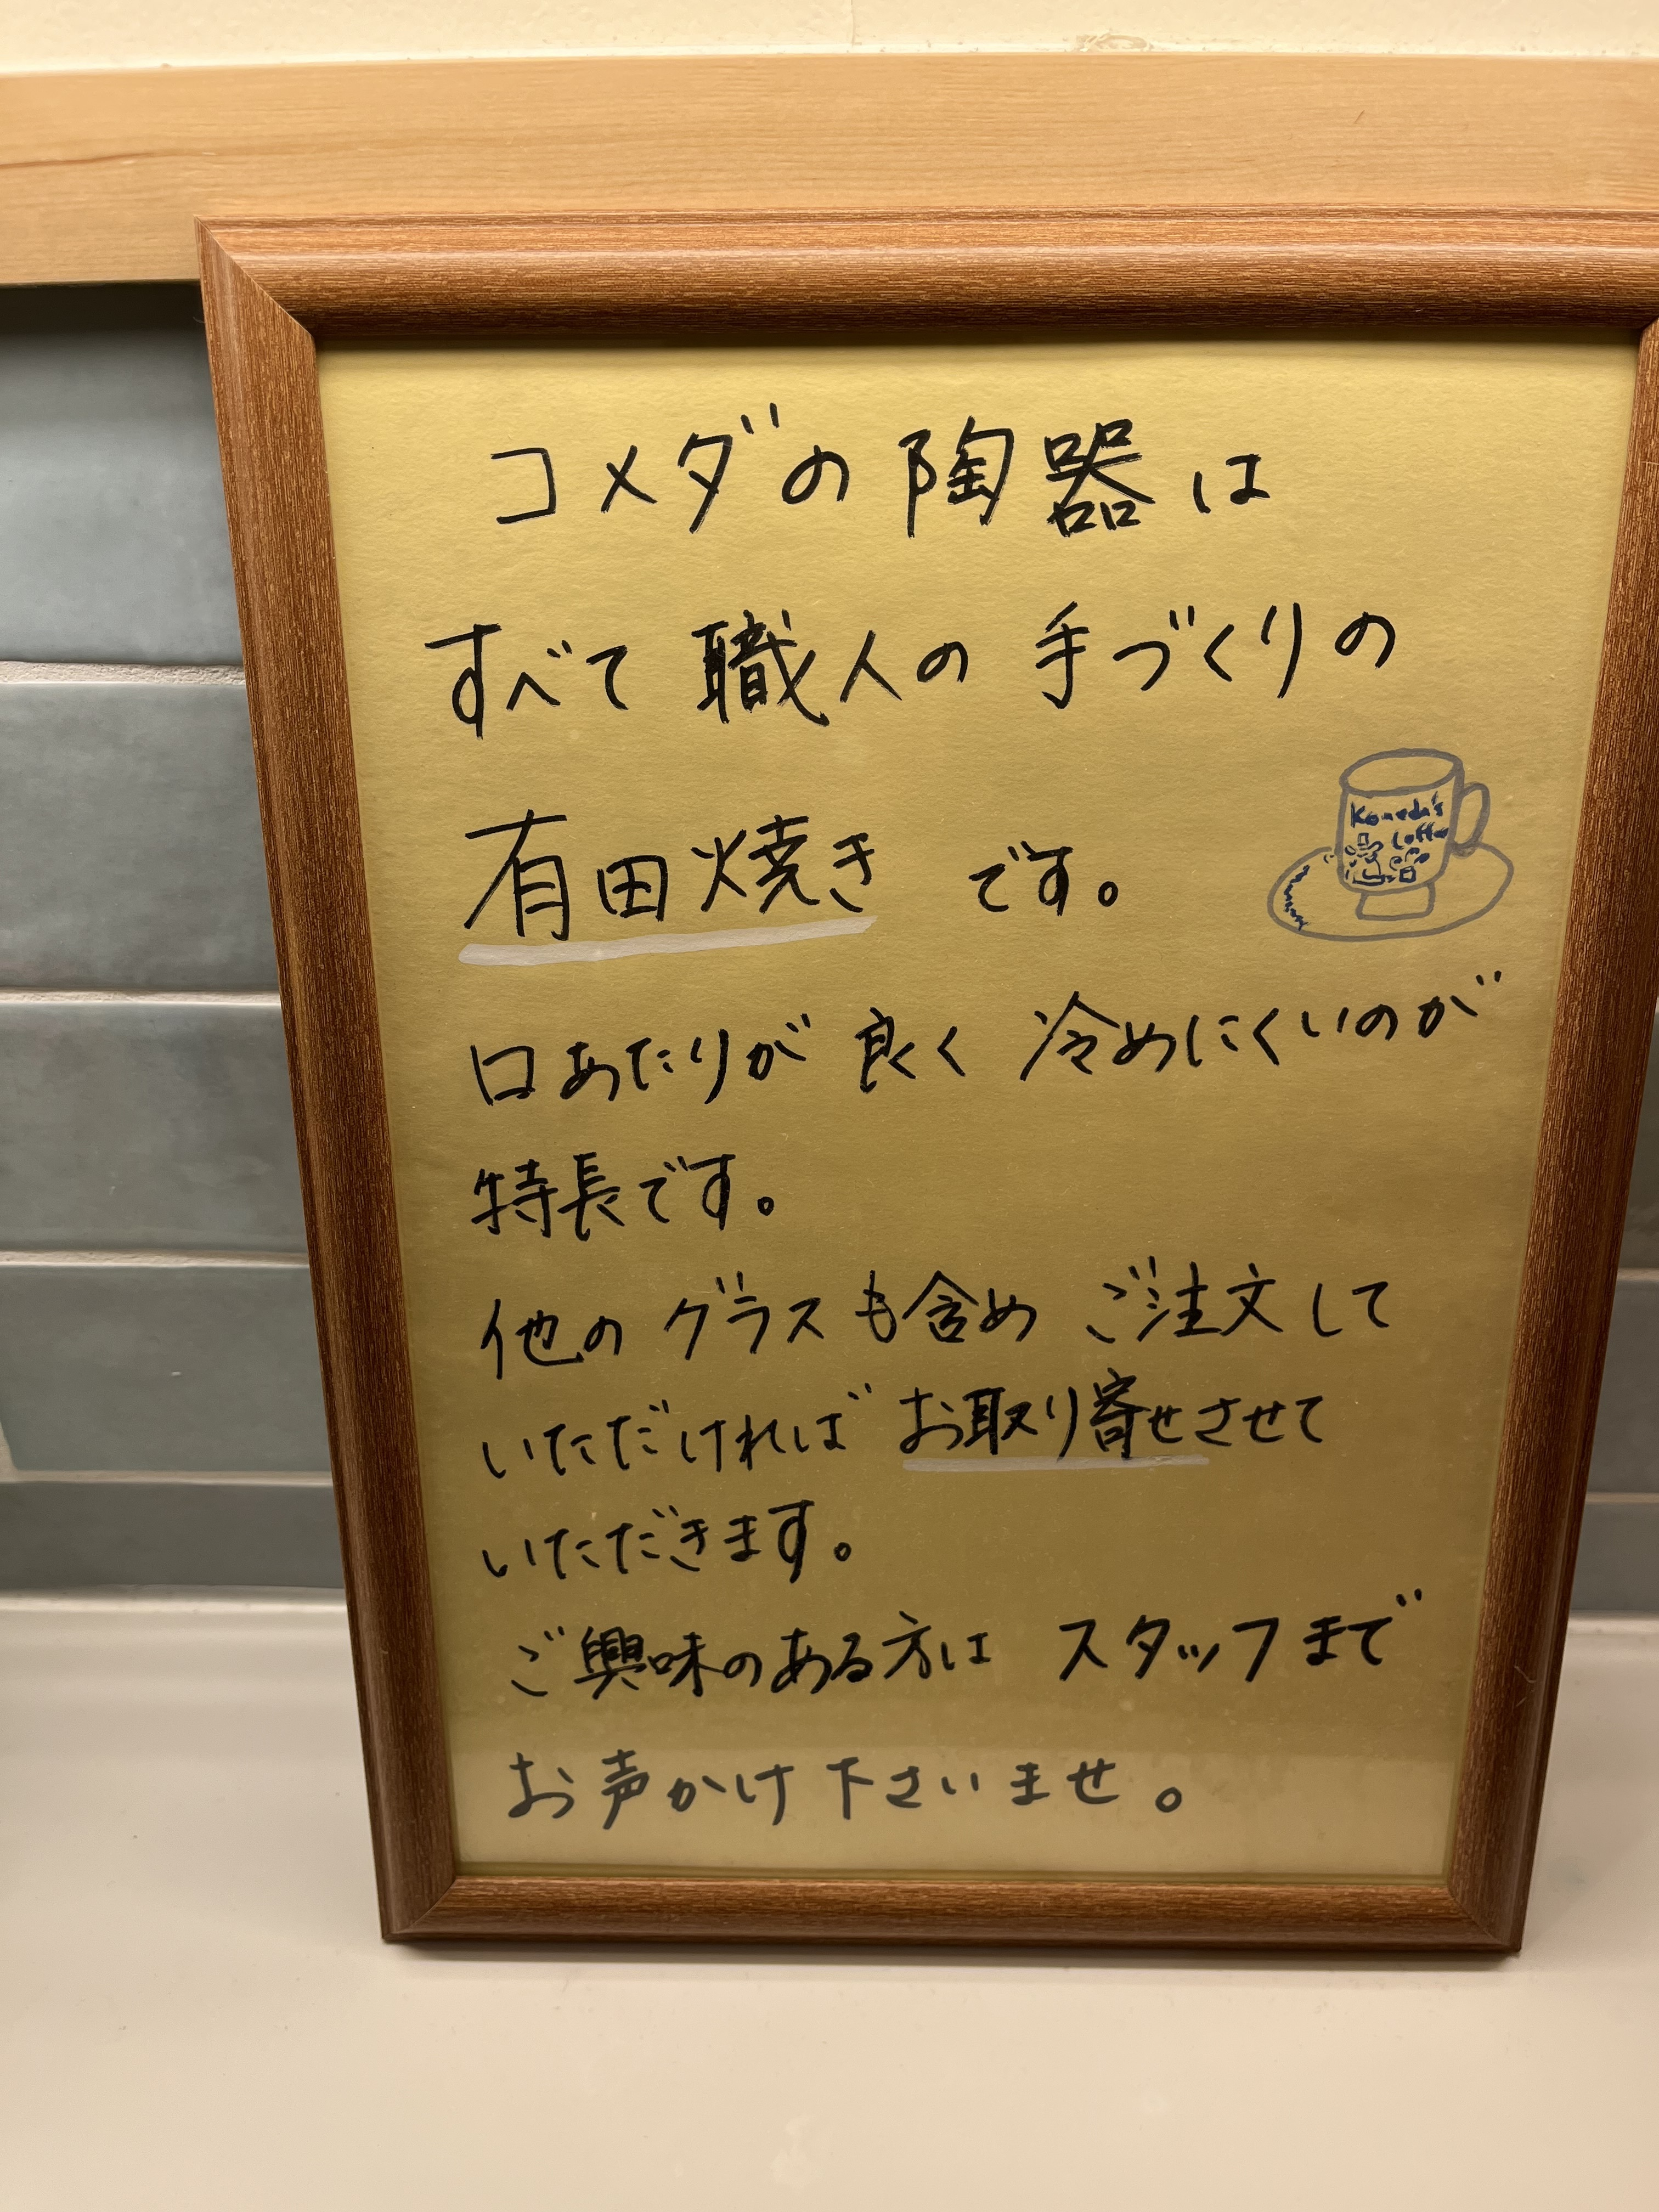 コメダの陶器は
すべて職人の手づくりの
有田焼きです。
Komeda's
Coffee
口あたりが良く冷めにくいのが
特長です。
他のグラスも含めご注文して
いただければお取り寄せさせて
いただきます。
ご興味のある方はスタッフまで
お声かけ下さいませ。